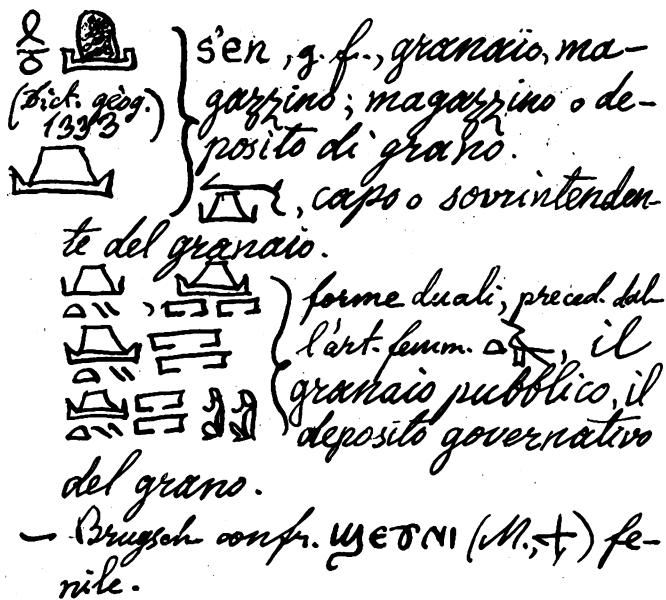 s'en, g. f., granaio, ma-
(Dict. géog. gazzino; magazzino o de-
1333) posito di grano.
, capo o sovrintenden-
te del granaio.
forme duali, preced. dal-
l'art. femm. , il
granaio pubblico, il
deposito governativo
del grano.
— Brugsch confr. ϣⲉⲩⲛⲓ (M., †) fe-
nile.